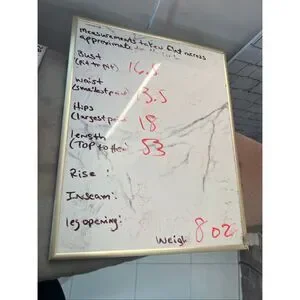 measurements taken flat across
approximate
Bust
(Pit to Pit) 16.5
waist
(smallest part) 3.5
Hips
(largest point 18
length
(TOP to Hem 53
Rise :
Inseam:
leg opening:
weigh 8 oz